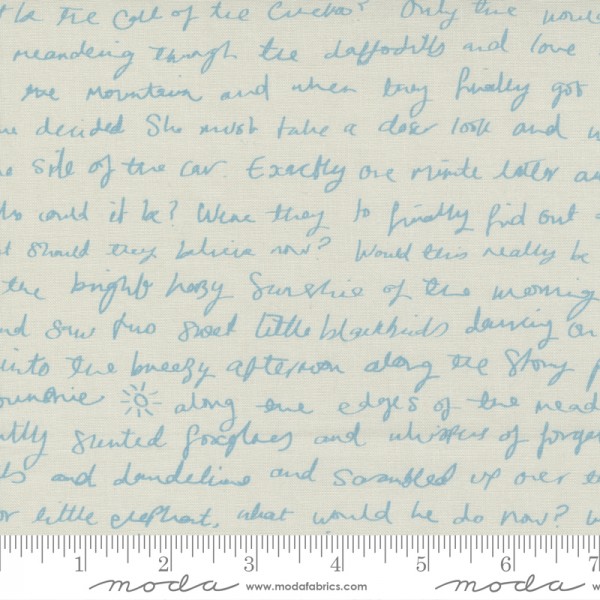 the Call of the Cuckoo? Only time would
meandering through the daffodills and love
the mountain and when they finally got
decided She must take a closer look and
the side of the car. Exactly one minute later
could it be? Were they to finally find out
should they believe now? Would this really be
the bright hazy Sunshine of the morning
and saw two sweet little blackbirds dancing on
into the breezy afternoon along the Stony
along the edges of the
scented foxgloves and whispers of
and dandelions and Scrambled up over
little elephant, what would he do now?
1 2 3 4 5 6 7
moda www.modafabrics.com moda www.modafabrics.com